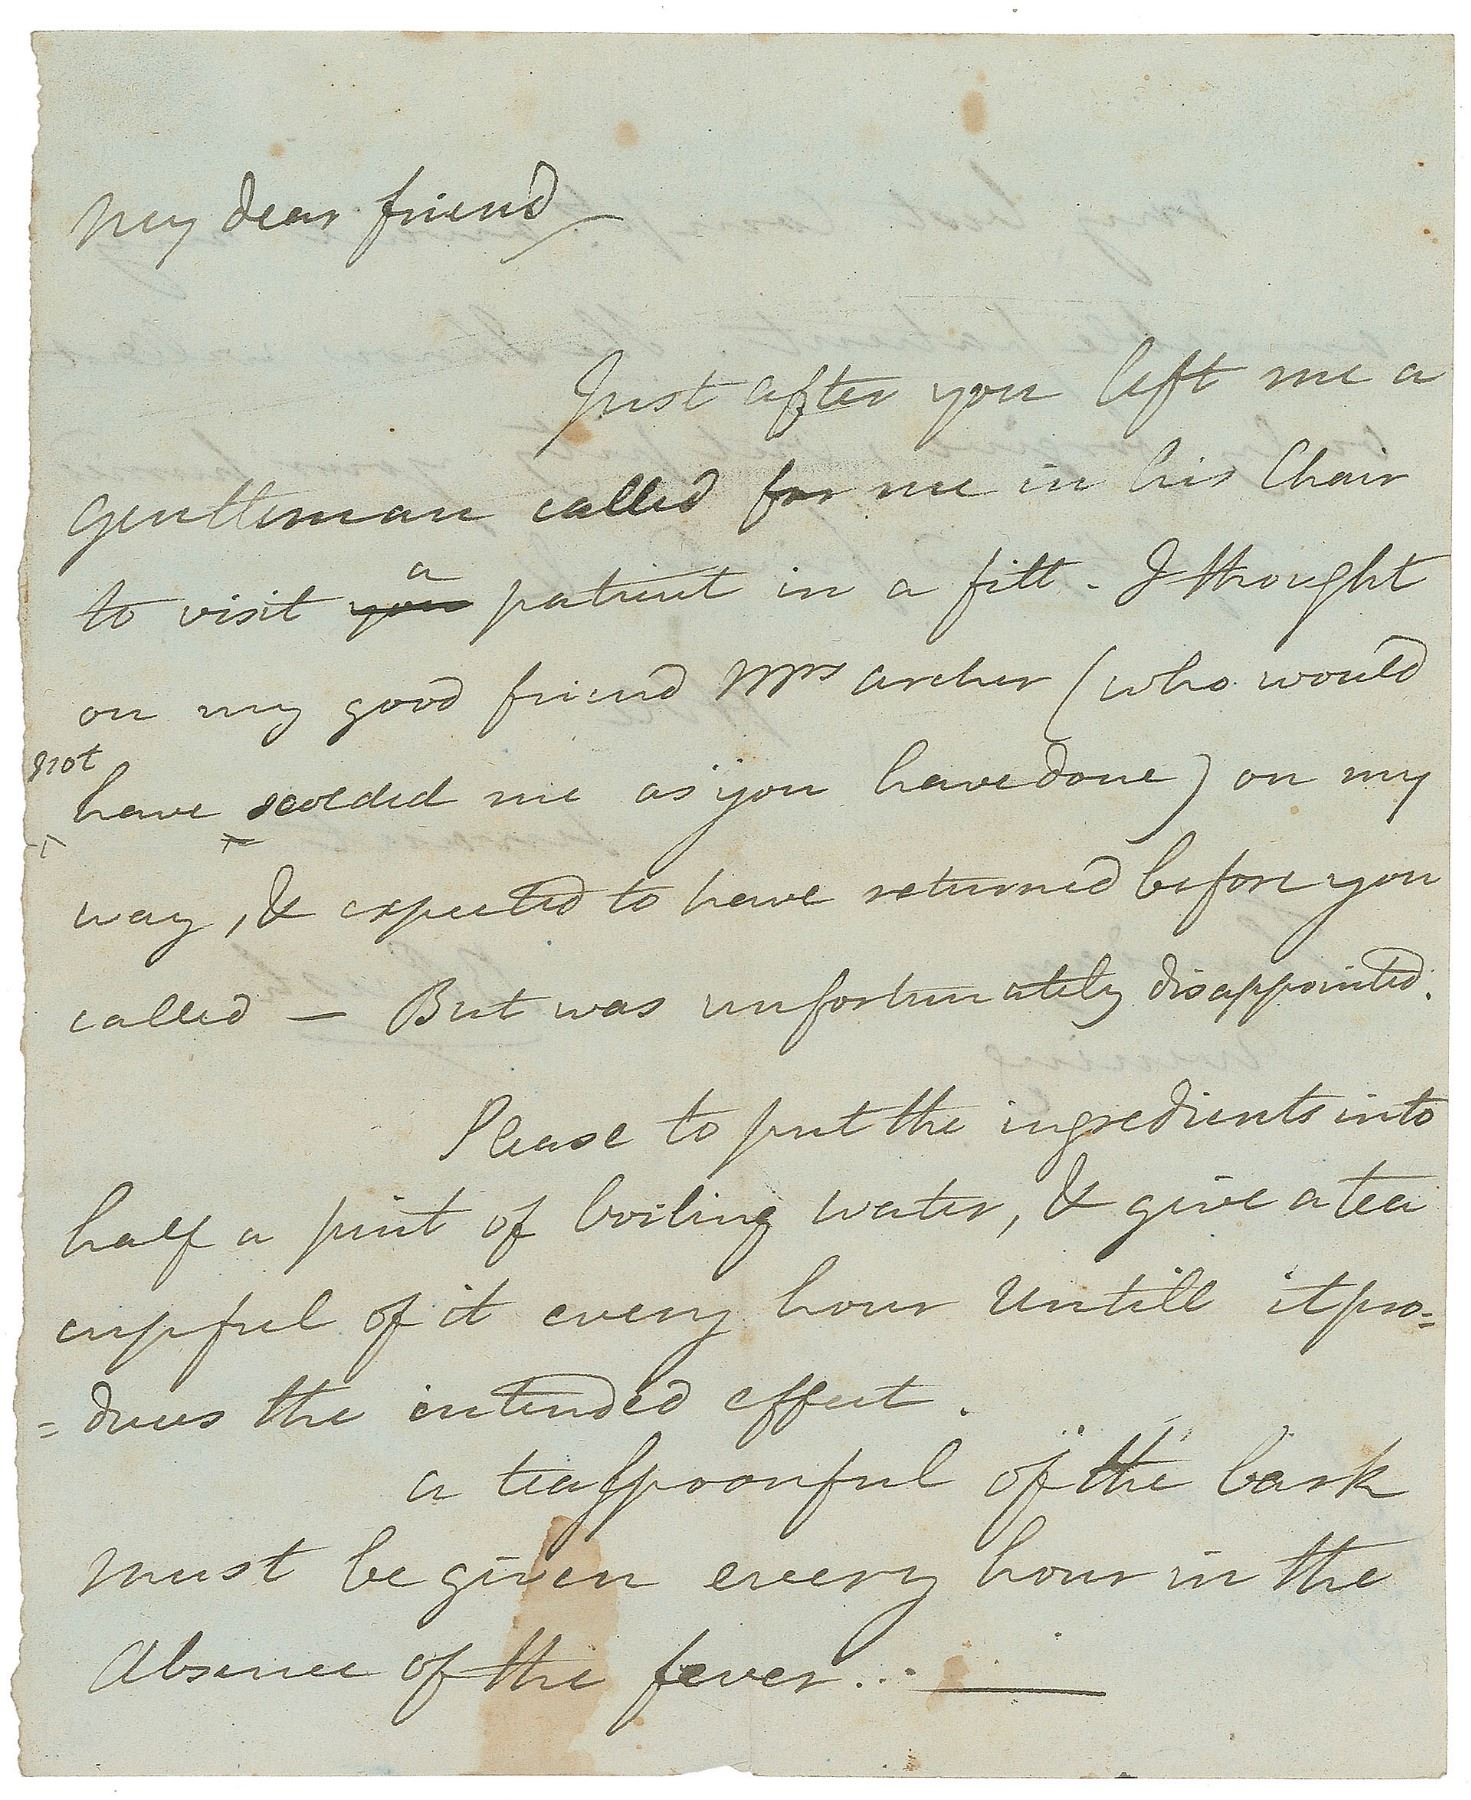 My dear friend
Just after you left me a
Gentleman called for me in his Chair
to visit you a patient in a fitt - I thought
on my good friend Mrs archer (who would
not
have scolded me as you have done) on my
way, & expected to have returned before you
called — But was unfortunately disappointed.
Please to put the ingredients into
half a pint of boiling water, & give a tea
cupful of it every hour untill it pro=
=duces the intended effect.
a teaspoonful of the bark
must be given every hour in the
absence of the fever. . —